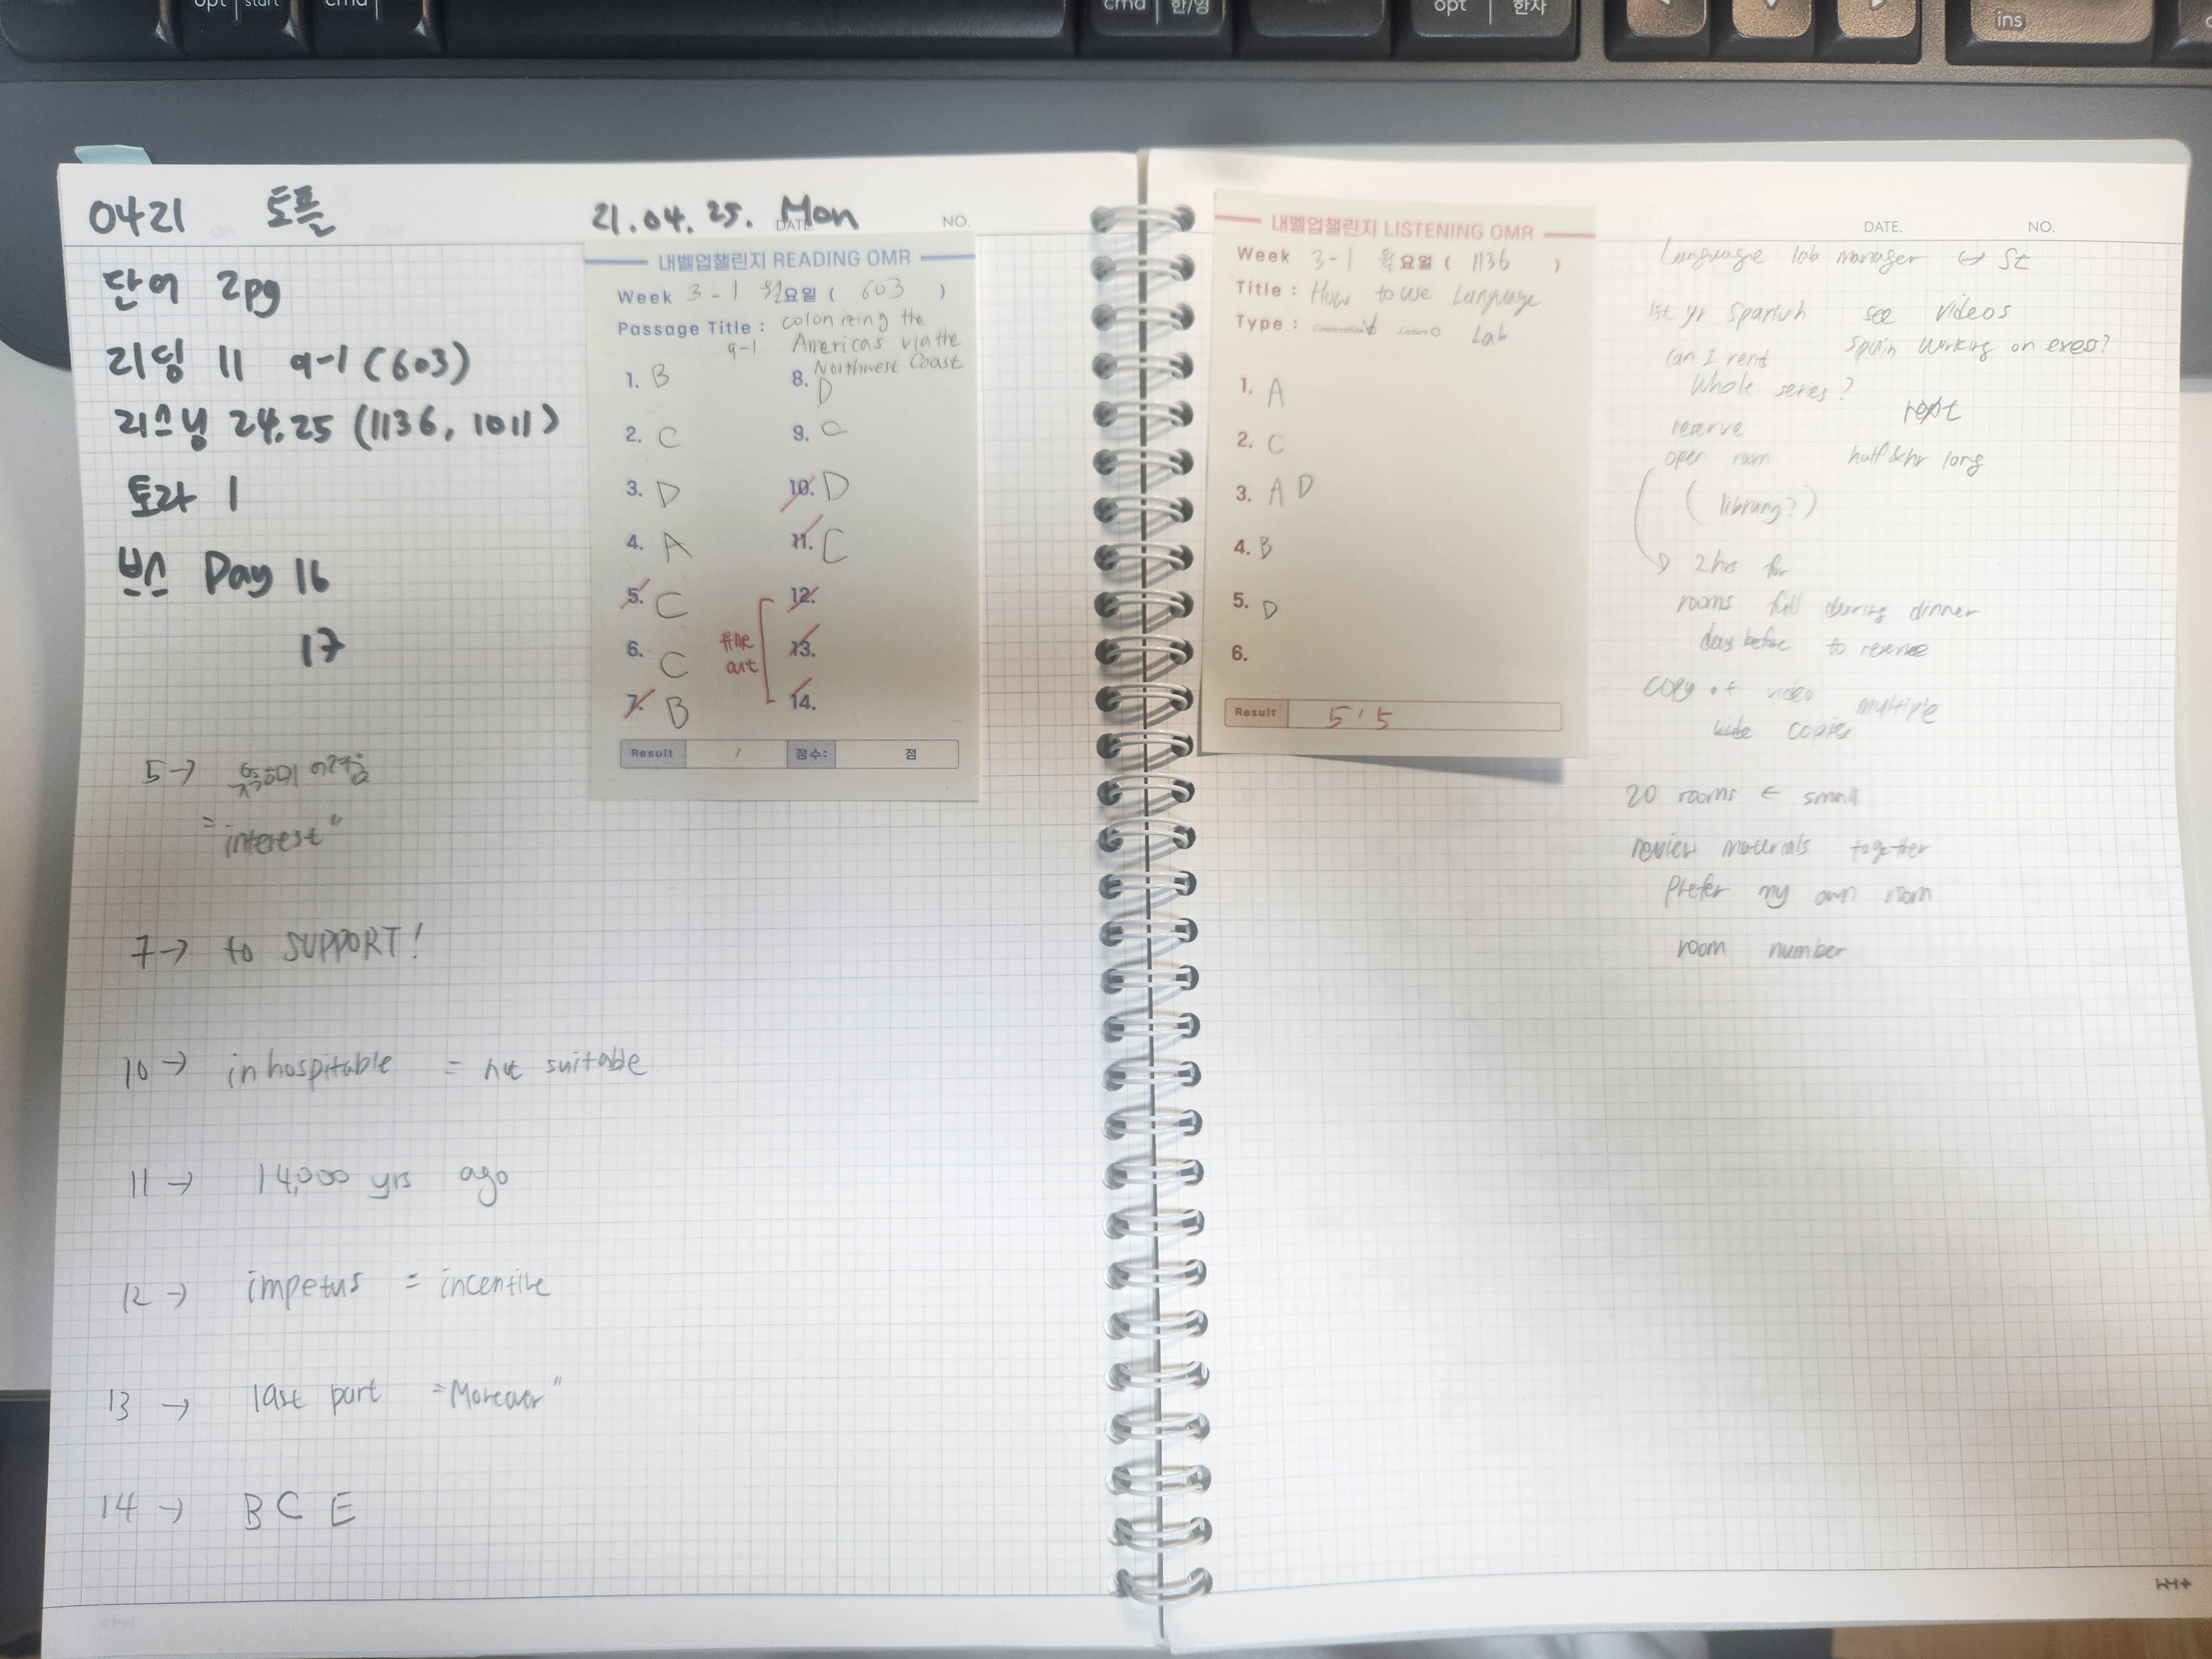 opt start cmd
cmd 한/영
opt 한자
ins
0421 토플
21.04.25. Mon
DATE. NO.
단어 2pg
리딩 11 9-1 (603)
리스닝 24,25 (1136, 1011)
토라 1
보스 Day 16
17
내벨업챌린지 READING OMR
Week 3-1 월요일 ( 603 )
Passage Title : Colonizing the
9-1 Americas via the
Northwest Coast
1. B
2. C
3. D
4. A
5. C
6. C
7. B
8. D
9. C
10. D
11. C
12.
13.
14.
time
out
Result / 점수: 점
5→
= interest"
7→ to SUPPORT!
10→ inhospitable = not suitable
11→ 14,000 yrs ago
12→ impetus = incentive
13→ last part = Moreover"
14→ B C E
내벨업챌린지 LISTENING OMR
Week 3-1 월요일 ( 1136 )
Title : How to use Language
Lab
Type : Conversation Lecture
1. A
2. C
3. A D
4. B
5. D
6.
Result 5/5
DATE. NO.
Language lab manager ↔ St
1st yr Spanish see videos
Spain working on exes?
can I rent
whole series?
reserve
open room half & hr long
(library?)
2hrs for
rooms full during dinner
day before to reserve
copy of video multiple
copies
20 rooms ← small
review materials together
prefer my own room
room number